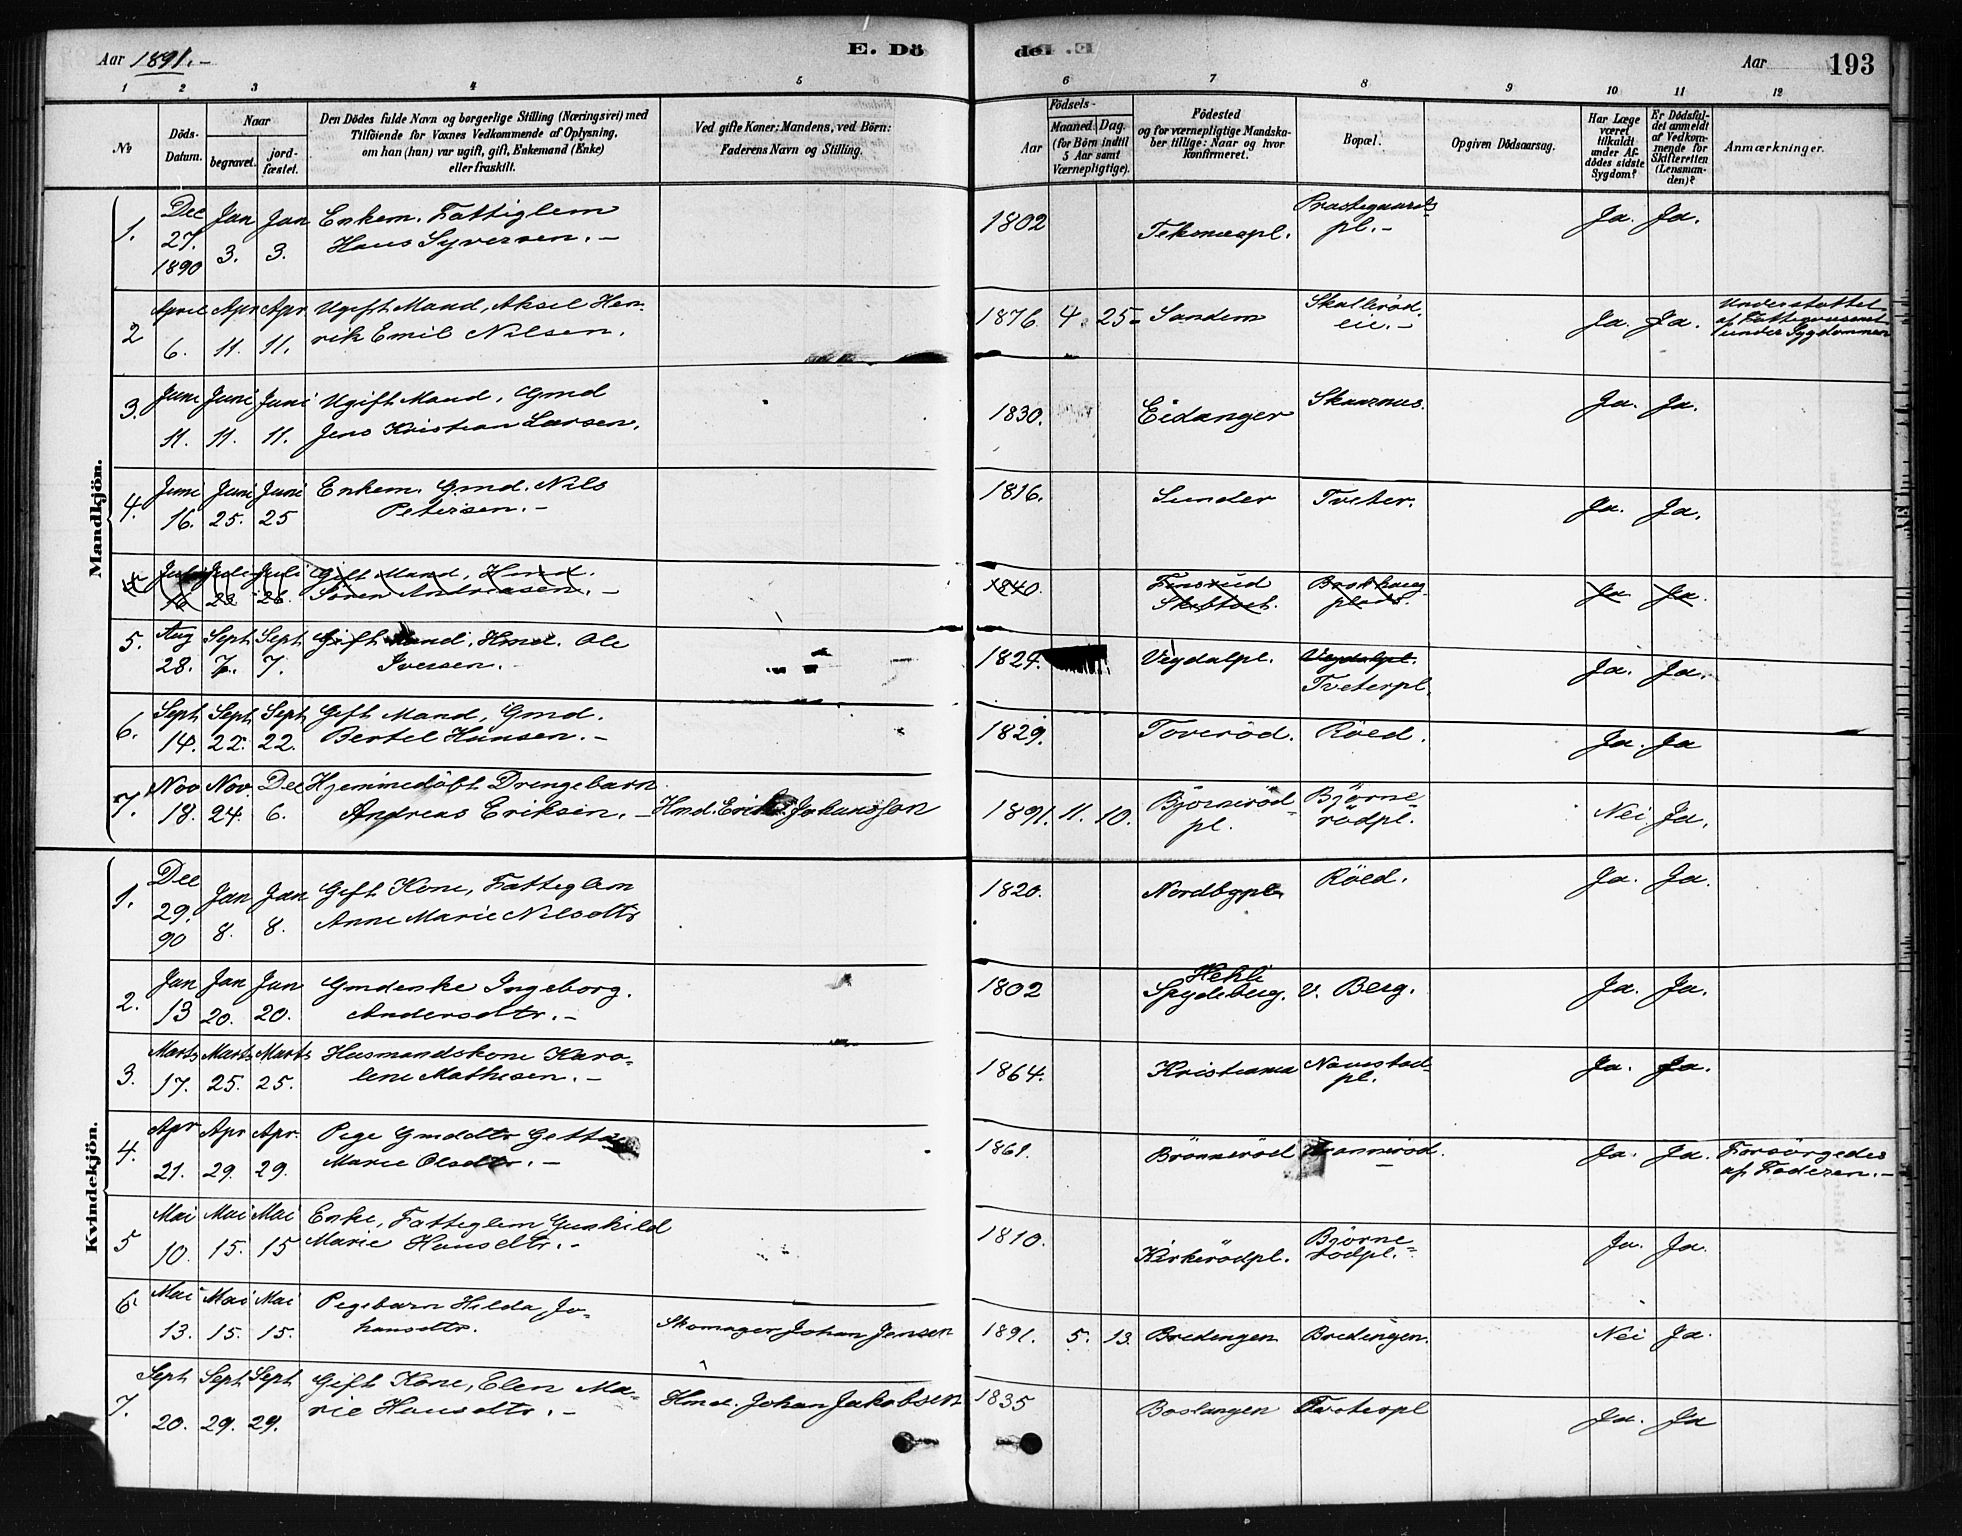 Aar 1891.-
E. Dö
de. E
Aar
193
1 2 3 4 5 6 7 8 9 10 11 12
No
Döds-Datum.
Naar
begravet.
jord-fæstet.
Den Dödes fulde Navn og borgerlige Stilling (Næringsvei) med
Tilföiende for Voxnes Vedkommende af Oplysning,
om han (hun) var ugift, gift, Enkemand (Enke)
eller fraskilt.
Ved gifte Koner: Mandens, ved Börn:
Faderens Navn og Stilling.
Födsels-
Aar
Maaned. Dag.
(for Börn indtil
5 Aar samt
Værnepligtige).
Födested
og for værnepligtige Mandska-
ber tillige: Naar og hvor
konfirmeret.
Bopæl.
Opgiven Dödsaarsag.
Har Læge
været
tilkaldt
under Af-
dödes sidste
Sygdom?
Er Dödsfal-
det anmeldt
af Vedkom-
mende for
Skifteretten
(Lensman-
den)?
Anmærkninger.
Mandkjön.
1. Dec 27. 1890 Jan 3. Jan 3. Enkem. Fattiglem
Hans Syversen.- 1802 Præstegaards
pl.- Ja. Ja.
2 April 6. Apr 11. Apr 11. Ugift Mand, Aksel Hen-
rik Emil Nilsen. 1876. 4. 25- Sandem Skallerud
eie.- Ja. Ja. Understøttet
af Fattigvæsenet
under Sygdommen
3. Juni 11. Juni 11. Juni 11. Ugift Mand, Gmd
Jens Kristian Larsen. 1830. Eidanger Skaarnes. Ja. Ja.
4. Juni 16. Juni 25. Juni 25 Enkem. Gmd. Nils
Petersen.- 1816. Sunder Tveter. Ja. Ja.
5 Juli 16 Juli Juli 26. Gift Mand, Hmd.
Sören Andreasen.- 1840. Ja Ja.
5. Aug 28. Sept 7. Sept 7. Gift Mand. Hmd. Ole
Iversen. Vegdalpl. Vegdalpl.
Tveterpl. Ja. Ja.
6. Sept 14. Sept 22. Sept 22. Gift Mand, Gmd.
Bertel Hansen.- 1829. Toveröd. Röed. Ja. Ja
7. Nov 18. Nov. 24. Dec 6. Hjemmedöbt Drengebarn
Andreas Eriksen.- Hmd. Erik Johansson 1891. 11. 10. Björneröd
pl. Björne-
rödpl. Nei. Ja.
Kvindekjön.
1. Dec 29. 90 Jan 8. Jan 8. Gift Kone, Fattiglem
Anne Marie Nilsdtr 1820. Nordbypl. Röed. Ja. Ja.
2. Jan 13 Jan 20. Jan 20. Gmdenke Ingeborg.
Andersdtr.- 1802 Hehli
Spydeberg. V. Berg. Ja. Ja.
3. Marts 17. Marts 25. Marts 25. Husmandskone Karo-
line Mathisen.- 1864. Kristiania Navestad-
pl. Ja. Ja.
4. Apr 21. Apr 29. Apr. 29. Pige Gmddtr Getta
Marie Olsdtr.- 1861. Brönneröd Ja. Ja. Forsörgedes
af Faderen.-
5 Mai 10. Mai 15. Mai 15 Enke, Fattiglem Gunhild
Marie Hansdtr.- 1810. Kirkerödpl. Björne-
rödpl.- Ja. Ja.
6. Mai 13. Mai 15. Mai 15. Pigebarn Hilda Jo-
hansdtr. Skomager Johan Jensen 1891. 5. 13. Bredengen Bredengen. Nei Ja.
7. Sept 20. Sept 29. Sept 29. Gift Kone, Elen Ma-
rie Hansdtr.- Hmd. Johan Jakobsen 1835 Baslangen Tveterpl Ja. Ja